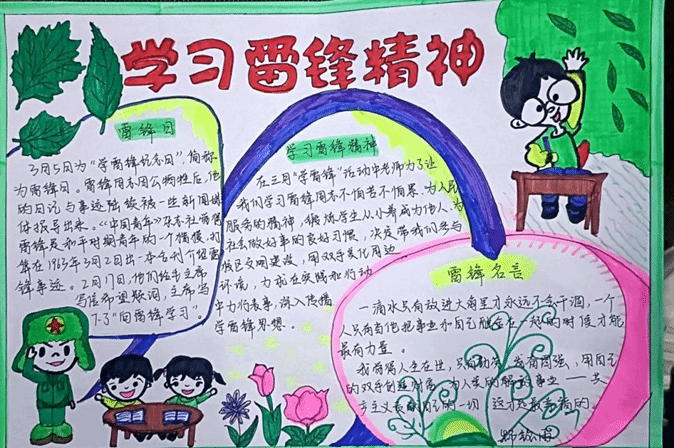 学习雷锋精神
雷锋日
3月5日为"学雷锋纪念日",简称
为雷锋日。雷锋同志因公牺牲后,他
的日记与事迹陆续被一些新闻媒
体报导出来。《中国青年》杂志社
雷锋是和平时期青年的一个楷模,
在1963年3月2日出一本合刊介绍雷
锋事迹。2月17日,他们给毛主席
写信希望题词,主席写
了"向雷锋学习"。
学习雷锋精神
在三月"学雷锋"活动中老师为了让
我们学习雷锋同志不怕苦不怕累、为人民
服务的精神,锻炼学生从小养成为他人、为
社会做好事的良好习惯,决定带我们参与
文明建设,用双手美化周边
环境,力求在实践和行动
中力行表率,深入传播
学雷锋思想。
雷锋名言
一滴水只有放进大海里才永远不会干涸,一个
人只有当他把事业和自己融合在一起的时候才能
最有力量。
我觉得人生在世,只有勤劳,发奋图强,用自己
的双手创造财富,为人类的解放事业——共
产主义贡献自己的一切,这才是最幸福的。